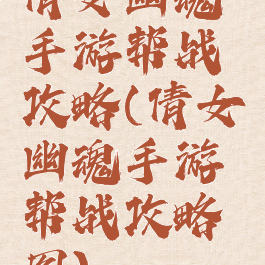 倩女幽魂
手游帮战
攻略(倩女
幽魂手游
帮战攻略
图)